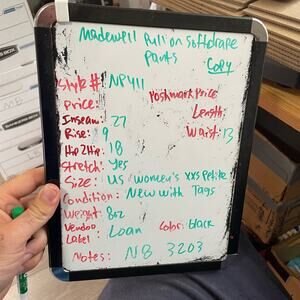 Madewell Pull on Softdrape
Pants
Copy
Style #: NP411
Price:
Poshmark Price
Inseam: 27
Length:
Rise: 9
Waist: 13
Hip2Hip: 18
Stretch: Yes
Size: US women's XXS Petite
Condition: New with Tags
Weight: 8oz
Vendoo Label
Loan
Color: black
Notes: NB 3203
NB